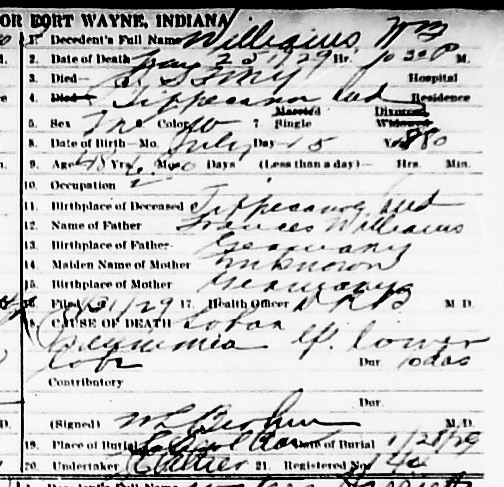 OR FORT WAYNE, INDIANA
1. Decedent's Full Name Williams Wm
2. Date of Death Jan 25 1/29 Hr. 30 P M.
3. Died Hospital
4. Died Tippecanoe Ind Residence
Married Divorced
5. Sex M 6. Color W 7. Single Widowed
8. Date of Birth—Mo. July Day 15 Yr. 880
9. Age 48 Yrs. 6 Mos. 10 Days (Less than a day) Hrs. Min.
10. Occupation
11. Birthplace of Deceased Tippecanoe Ind
12. Name of Father Frances Williams
13. Birthplace of Father Germany
14. Maiden Name of Mother Unknown
15. Birthplace of Mother Germany
16. Filed 1/29 17. Health Officer M. D.
18. CAUSE OF DEATH Lobar
Pneumonia lower
lobe Dur. 10 das
Contributory
Dur.
(Signed) M. D.
19. Place of Burial Date of Burial 1/28/29
20. Undertaker 21. Registered No.
1. Decedent's Full Name